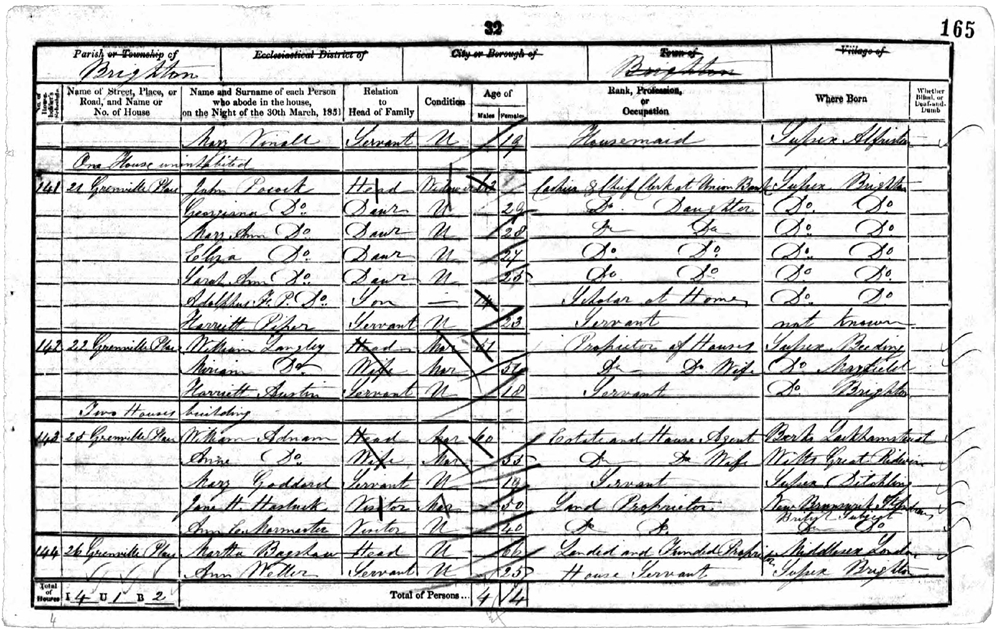 32
165
Parish or Township of Ecclesiastical District of City or Borough of Town of Village of
Brighton Brighton
No. of House-holder's Schedule Name of Street, Place, or Road, and Name or No. of House Name and Surname of each Person who abode in the house, on the Night of the 30th March, 1851 Relation to Head of Family Condition Age of Males Females Rank, Profession, or Occupation Where Born Whether Blind, or Deaf-and-Dumb
Mary Servant U 19 Housemaid Sussex Alfriston
One House uninhabited
141 21 Grenville Place John Pocock Head Widower Cashier & Chief Clerk at Union Bank Sussex Brighton
Georgiana Do Daur U 29 Do. Daughter Do. Do
Mary Ann Do Daur U 28 Do Do Do. Do
Eliza Do Daur U 27 Do. Do. Do. Do
Sarah Ann Do Daur U 25 Do Do Do. Do
Adolphus F. P. Do Son — 14 Scholar at Home Do. Do
Harriett Piper Servant U 23 Servant not known
142 22 Grenville Place William Langley Head Mar 61 Proprietor of Houses Sussex Beeding
Miriam Do Wife Mar Do Do Wife Do Mayfield
Harriett Austin Servant U 18 Servant Do. Brighton
Two Houses building
143 25 Grenville Place William Adnam Head Mar 60 Estate and House Agent Berks
Anne Do Wife Mar 55 Do Do Wife Wilts Great Bedwin
Mary Goddard Servant U 19 Servant Sussex Ditchling
Jane H. Visitor Mar 50 Land Proprietor New Brunswick
British Subject
Ann Visitor U 40 Do. Do. Do Do
144 26 Grenville Place Martha Bagshaw Head U 66 Landed and Funded Proprietor Middlesex London
Ann Weller Servant U 25 House Servant Sussex Brighton
Total of Houses I 4 U 1 B 2 Total of Persons... 4 14
4